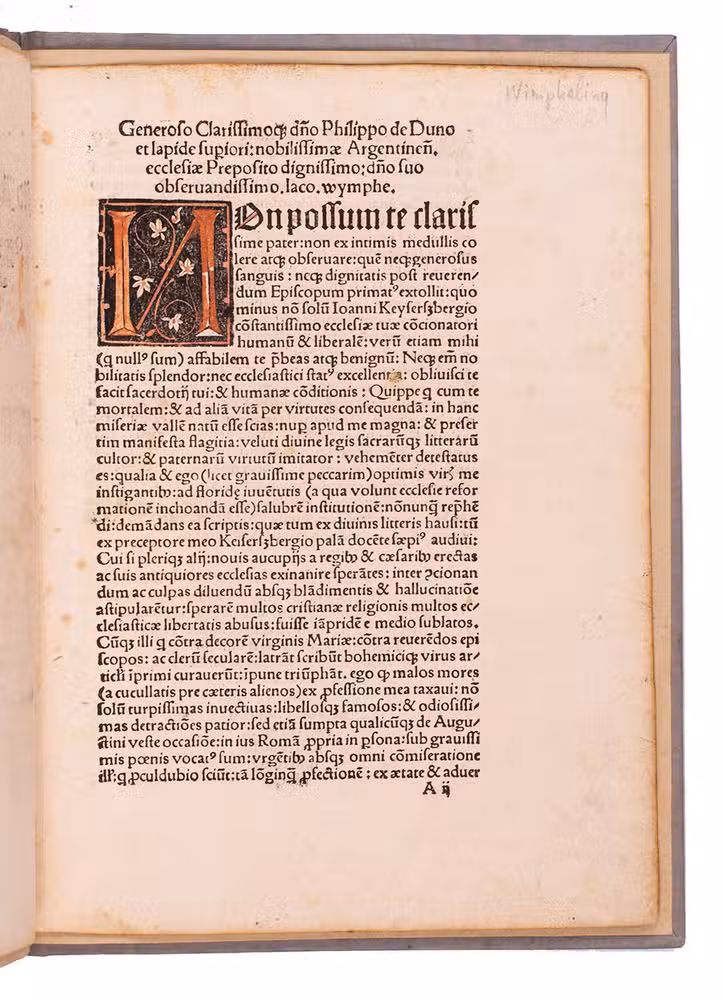 Wimpheling
Generoso Clarissimoqꝫ dño Philippo de Duno
et lapide supiori: nobilissimæ Argentineñ.
ecclesiæ Preposito dignissimo: dño suo
obseruandissimo. Iaco. wymphe.
NOn possum te claris
sime pater: non ex intimis medullis co
lere atqꝫ obseruare: quē neqꝫ generosus
sanguis: necqꝫ dignitatis post reueren/
dum Episcopum primatꝰ extollit: quo
minus nō solū Ioanni Keysersȝbergio
cōstantissimo ecclesiæ tuæ cōcionatori
humanū & liberalē: verū etiam mihi
(q nullꝰ sum) affabilem te p̄beas atqꝫ benignū: Neqꝫ em̄ no
bilitatis splendor: nec ecclesiastici statꝰ excellentia: obliuisci te
facit sacerdotij tui: & humanæ cōditionis: Quippe q cum te
mortalem: & ad aliā vitā per virtutes consequendā: in hanc
miseriæ vallē natū esse scias: nup apud me magna: & preser
tim manifesta flagitia: veluti diuine legis sacrarūqꝫ litterarū
cultor: & paternarū virtutū imitator: vehemēter detestatus
es: qualia & ego (licet grauissime peccarim) optimis virꝭ me
instigantibꝰ: ad floridę iuuētutis (a qua volunt ecclesie refor
mationē inchoandā esse) salubrē institutionē: nōnunq̄ rep̄hē
di: demādans ea scriptis: quæ tum ex diuinis litteris hausi: tū
ex preceptore meo Keisersȝbergio palā docēte sæpiꝰ audiui:
Cui si pleriqꝫ alij: nouis aucupijs a regibꝰ & cæsaribꝰ erectas
ac suis antiquiores ecclesias exinanire sperātes: inter ꝯcionan
dum ac culpas diluendū absqꝫ blādimentis & hallucinatiōe
astipularētur: sperarē multos cristianæ religionis multos ec/
clesiasticæ libertatis abusus: fuisse iāpridē e medio sublatos.
Cūqꝫ illi q cōtra decorē virginis Mariæ: cōtra reuerēdos epi
scopos: ac clerū secularē: latrāt scribūt bohemiciqꝫ virus ar/
ticli īprimi curauerūt: īpune triūphāt. ego qꝫ malos mores
(a cucullatis pre cæteris alienos) ex ꝓfessione mea taxaui: nō
solū turpissimas inuectiuas: libellosqꝫ famosos: & odiosissi/
mas detractiōes patior: sed etiā sumpta qualicūqꝫ de Augu/
stini veste occasiōe: in ius Romā ꝓpria in p̄sona: sub grauissi
mis pœnis vocatꝰ sum: vrgētibꝰ absqꝫ omni cōmiseratione
illꝭ: q ꝓculdubio sciūt: tā lōginq̄ ꝓfectionē: ex ætate & aduer
A ij